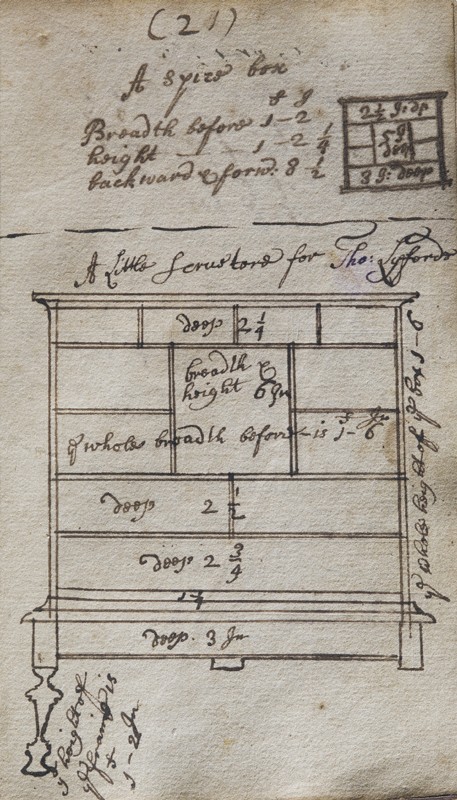 (21)
A Spice box
f I
Breadth before 1-2
height — 1-2 1/4
backward & forw: 8 1/2
2 1/2 I: dp
5 I
deep
3 I: deep
A Little Scrustore for Tho:
deep 2 1/4
breadth &
height 6 In
f In
ye whole breadth before is 1-6
deep 2 1/2
deep 2 3/4
deep. 3 In
ye whole height of ye box 1-6
ye height of
ye frame is
f In
1-2